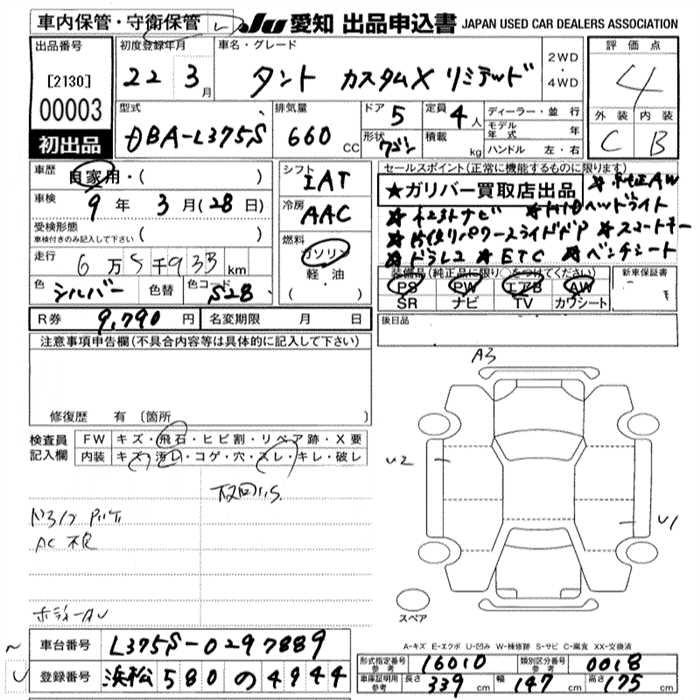 車内保管・守衛保管
JU 愛知 出品申込書 JAPAN USED CAR DEALERS ASSOCIATION
出品番号
[2130]
00003
初出品
初度登録年月
22 3月
車名・グレード
タント カスタムX リミテッド
2WD
・
4WD
評価点
4
外装 内装
C B
型式
DBA-L375S
排気量
660 CC
ドア 5
形状 ワゴン
定員 4人
積載 kg
ディーラー・並行
モデル年式 年
ハンドル 左・右
車歴
自家用・( )
車検
9年 3月(28日)
受検形態
車検付きのみ記入して下さい ( )
走行
6万5千933km
色 シルバー 色替 色コード S28
シフト
IAT
冷房
AAC
燃料
ガソリン
軽・油
セールスポイント(正常に機能するものに限ります)
★ガリバー買取店出品 ★純正AW
★ナビ ★HIDヘッドライト
★片側パワースライドドア ★スマートキー
★ドラレコ ★ETC ★ベンチシート
装備品(純正品に限り○をつけてください)
PS PW エアB AW
SR ナビ TV カワシート
新車保証書
有・無
R券 9,790円 名変期限 月 日
後日品
注意事項申告欄(不具合内容等は具体的に記入して下さい)
修復歴 有 〔箇所
検査員記入欄
FW キズ・飛石・ヒビ割・リペア跡・X要
内装 キズ・汚レ・コゲ・穴・スレ・キレ・破レ
AC不良
A3
U2
U1
スペア
A-キズ E-エクボ U-凹み W-補修跡 S-サビ C-腐食 XX-交換済
車台番号 L375S-0297889
登録番号 浜松580の4944
形式指定番号 参考 16010 類別区分番号 参考 0018
車庫証明用 参考 長さ 339cm 幅 147cm 高さ 175cm